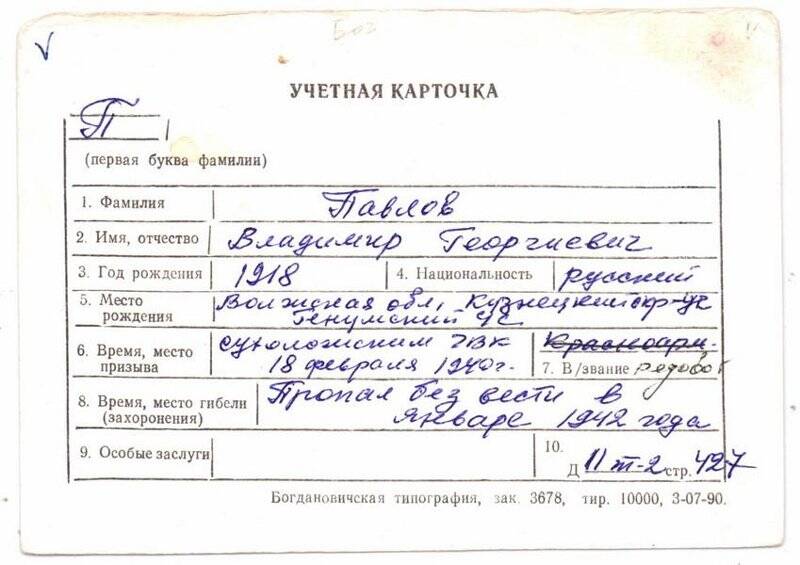 Бог
УЧЕТНАЯ КАРТОЧКА
П
(первая буква фамилии)
1. Фамилия Павлов
2. Имя, отчество Владимир Георгиевич
3. Год рождения 1918 4. Национальность русский
5. Место рождения Волжская обл, Кузнецкий
6. Время, место призыва сухоложским РВК 18 февраля 1940г.
Красноарм.
7. В/звание рядовой
8. Время, место гибели (захоронения) Пропал без вести в январе 1942 года
9. Особые заслуги
10. Д 11 т-2 стр. 427
Богдановичская типография, зак. 3678, тир. 10000, 3-07-90.